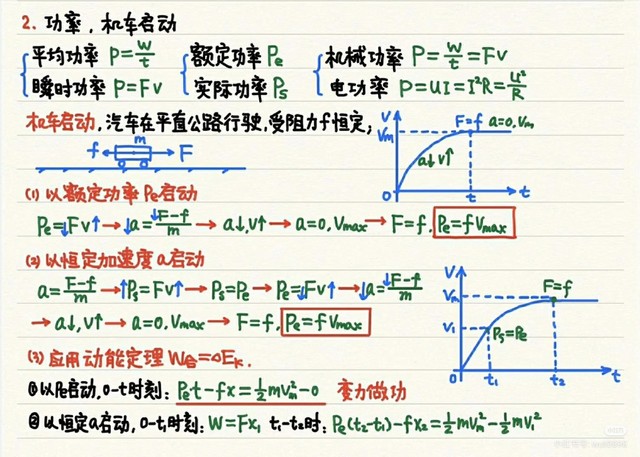 2. 功率，机车启动
平均功率 P=W/t 额定功率 Pe 机械功率 P=W/t=Fv
瞬时功率 P=Fv 实际功率 Ps 电功率 P=UI=I²R=U²/R
机车启动，汽车在平直公路行驶，受阻力f恒定；
f m F
V Vm F=f a=0,Vm a↓v↑ 0 t t
(1) 以额定功率Pe启动
Pe=↓Fv↑→↓a=↓F-f/m→a↓,v↑→a=0,Vmax→F=f, Pe=fVmax
(2) 以恒定加速度a启动
a=F-f/m→↑Ps=Fv↑→Ps=Pe→Pe=↓Fv↑→↓a=↓F-f/m
→a↓,v↑→a=0,Vmax→F=f, Pe=fVmax
V Vm F=f V₁ Ps=Pe 0 t₁ t₂ t
(3) 应用动能定理 W合=ΔEk.
①以Pe启动,0-t时刻: Pet-fx=½mvm²-0 变力做功
②以恒定a启动,0-t₁时刻: W=Fx₁ t₁-t₂时: Pe(t₂-t₁)-fx₂=½mvm²-½mv₁²